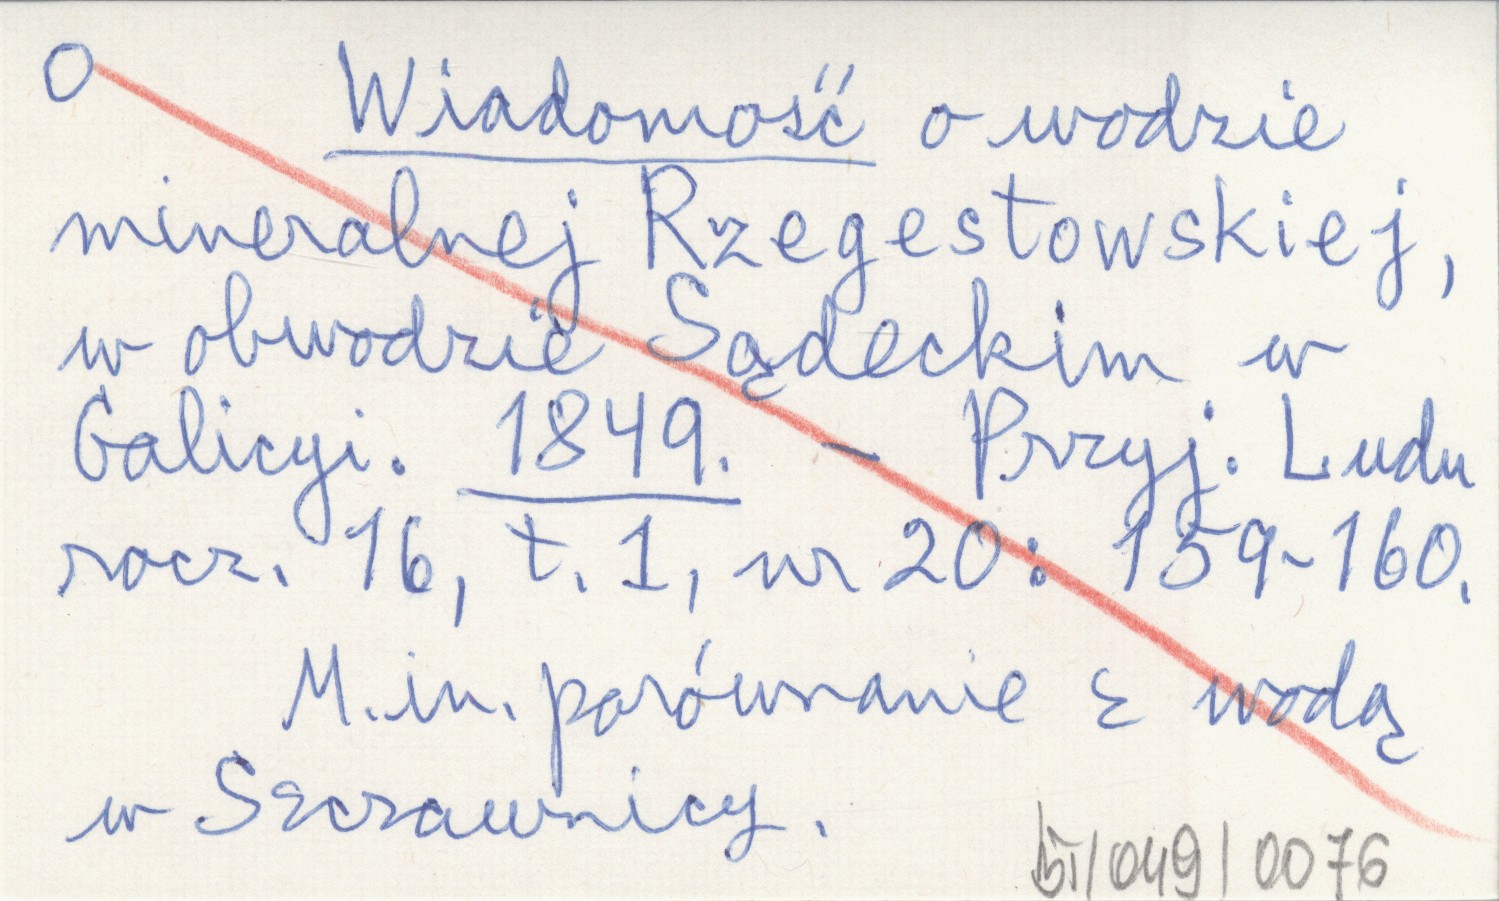 O Wiadomość o wodzie
mineralnej Rzegestowskiej,
w obwodzie Sądeckim w
Galicyi. 1849. – Przyj. Ludu
rocz. 16, t. 1, nr 20: 159-160.
M.in. porównanie z wodą
w Szczawnicy.
/049/0076